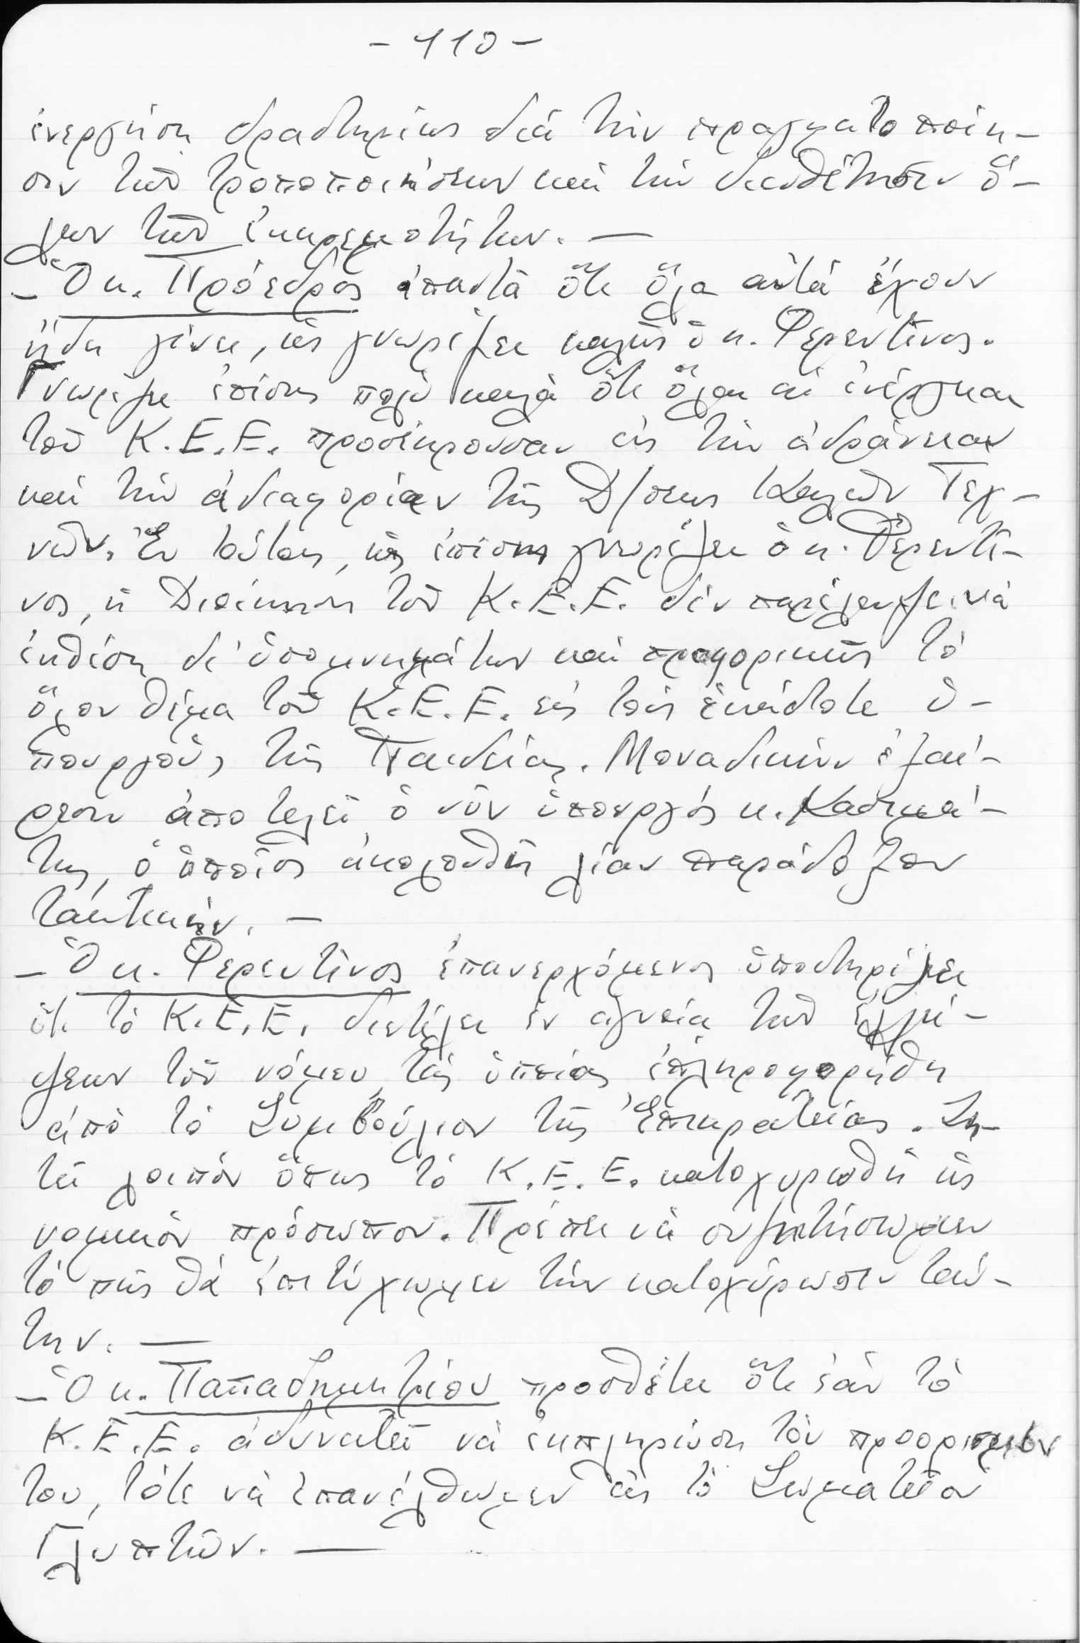 - 110 -
ἐνεργήσῃ δραστηρίως διά τήν πραγματοποίη-
σιν τῶν τροποποιήσεων καί τήν διευθέτησιν ὅ-
λων τῶν ἐκκρεμοτήτων. —
- Ὁ κ. Πρόεδρος ἀπαντᾶ ὅτι ὅλα αὐτά ἔχουν
ἤδη γίνει, ὡς γνωρίζει καλῶς ὁ κ. Φερεντῖνος.
Γνωρίζει ἐπίσης πολύ καλά ὅτι ὅλαι αἱ ἐνέργειαι
τοῦ Κ.Ε.Ε. προσέκρουσαν εἰς τήν ἀδράνειαν
καί τήν ἀδιαφορίαν τῆς Δ/σεως Καλῶν Τεχ-
νῶν. Ἐν τούτοις, ὡς ἐπίσης γνωρίζει ὁ κ. Φερεντῖ-
νος, ἡ Διοίκησις τοῦ Κ.Ε.Ε. δέν παρέλειψε νά
ἐκθέσῃ δι' ὑπομνημάτων καί προφορικῶς τό
ὅλον θέμα τοῦ Κ.Ε.Ε. εἰς τούς ἑκάστοτε ὑ-
πουργούς τῆς Παιδείας. Μοναδικήν ἐξαί-
ρεσιν ἀποτελεῖ ὁ νῦν ὑπουργός κ. Κασιμά-
της, ὁ ὁποῖος ἀκολουθεῖ λίαν παράδοξον
τακτικήν. —
- Ὁ κ. Φερεντῖνος ἐπανερχόμενος ὑποστηρίζει
ὅτι τό Κ.Ε.Ε. διετέλει ἐν ἀγνοίᾳ τῶν ἐλλεί-
ψεων τοῦ νόμου, τάς ὁποίας ἐπληροφορήθη
ἀπό τό Συμβούλιον τῆς Ἐπικρατείας. Ζη-
τεῖ λοιπόν ὅπως τό Κ.Ε.Ε. κατοχυρωθῇ ὡς
νομικόν πρόσωπον. Πρέπει νά συζητήσωμεν
τό πῶς θά ἐπιτύχωμεν τήν κατοχύρωσιν ταύ-
την. —
- Ὁ κ. Παπαδημητρίου προσθέτει ὅτι ἐάν τό
Κ.Ε.Ε. ἀδυνατεῖ νά ἐκπληρώσῃ τόν προορισμόν
του, τότε νά ἐπανέλθωμεν εἰς τό Σωματεῖον
Γλυπτῶν. —